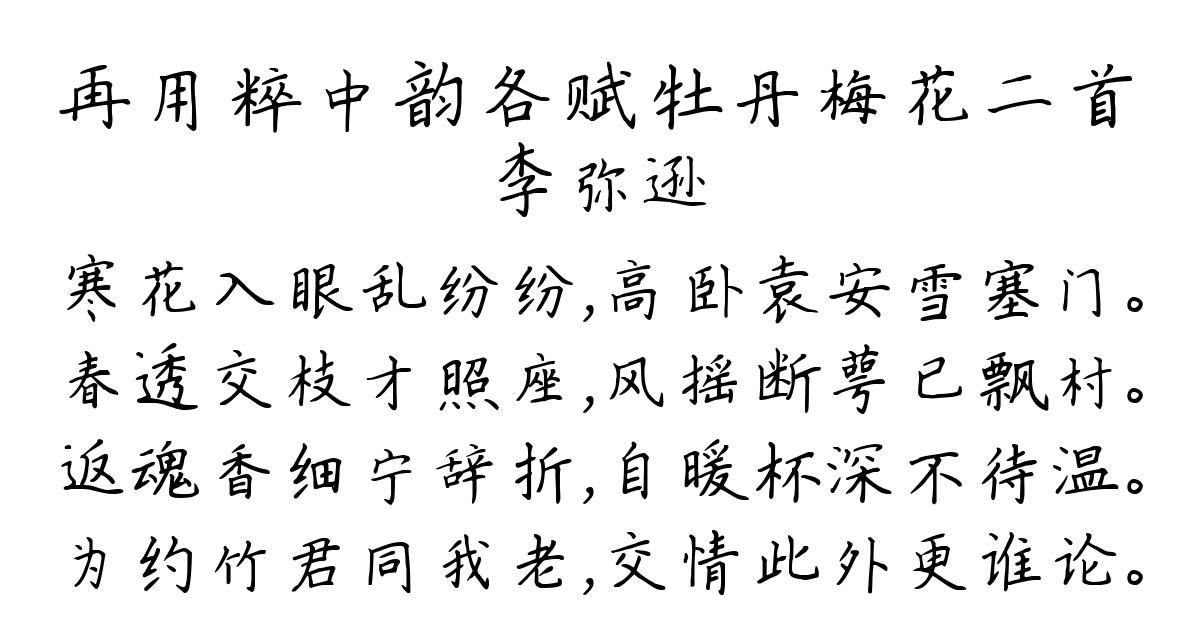 再用粹中韵各赋牡丹梅花二首
李弥逊
寒花入眼乱纷纷,高卧袁安雪塞门。
春透交枝才照座,风摇断萼已飘村。
返魂香细宁辞折,自暖杯深不待温。
为约竹君同我老,交情此外更谁论。